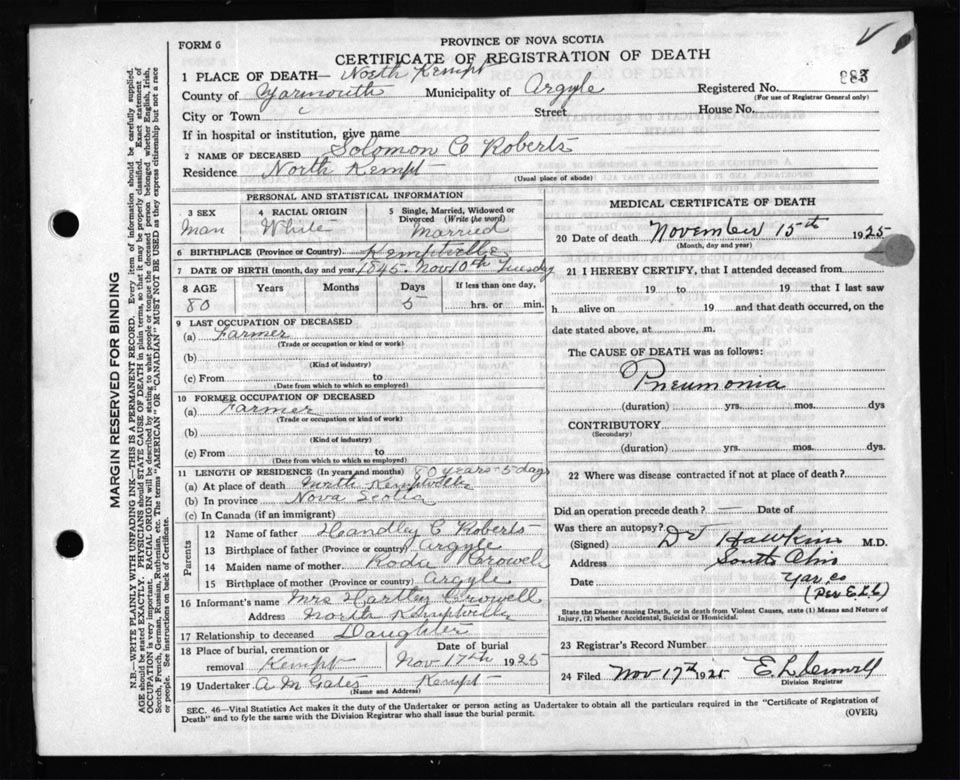 FORM 6
PROVINCE OF NOVA SCOTIA
CERTIFICATE OF REGISTRATION OF DEATH
1 PLACE OF DEATH— North Kempt
County of Yarmouth Municipality of Argyle Registered No. 983
(For use of Registrar General only)
City or Town Street House No.
If in hospital or institution, give name
2 NAME OF DECEASED Solomon C Roberts
Residence North Kempt
(Usual place of abode)
PERSONAL AND STATISTICAL INFORMATION
3 SEX 4 RACIAL ORIGIN 5 Single, Married, Widowed or Divorced (Write the word)
Man White Married
6 BIRTHPLACE (Province or Country) Kemptville
7 DATE OF BIRTH (month, day and year 1845. Nov 10th Tuesday
8 AGE Years Months Days If less than one day,
80 5 hrs. or min.
9 LAST OCCUPATION OF DECEASED
(a) Farmer
(Trade or occupation or kind or work)
(b)
(Kind of industry)
(c) From to
(Date from which to which so employed)
10 FORMER OCCUPATION OF DECEASED
(a) Farmer
(Trade or occupation or kind of work)
(b)
(Kind of industry)
(c) From to
(Date from which to which so employed)
11 LENGTH OF RESIDENCE (In years and months) 80 years - 5 days
(a) At place of death North Kemptville
(b) In province Nova Scotia
(c) In Canada (if an immigrant)
Parents
12 Name of father Handley C Roberts
13 Birthplace of father (Province or country) Argyle
14 Maiden name of mother Roda Crowell
15 Birthplace of mother (Province or country) Argyle
16 Informant's name Mrs Hartley Crowell
Address North Kemptville
17 Relationship to deceased Daughter
18 Place of burial, cremation or removal Kempt Date of burial Nov 17th 1925
19 Undertaker A M Gates Kempt
(Name and Address)
MEDICAL CERTIFICATE OF DEATH
20 Date of death November 15th 1925
(Month, day and year)
21 I HEREBY CERTIFY, that I attended deceased from
19 to 19 that I last saw
h alive on 19 and that death occurred, on the
date stated above, at m.
The CAUSE OF DEATH was as follows:
Pneumonia
(duration) yrs. mos. dys
CONTRIBUTORY
(Secondary)
(duration) yrs. mos. dys.
22 Where was disease contracted if not at place of death?
Did an operation precede death? — Date of
Was there an autopsy?
(Signed) Dr Hawkins M.D.
Address South Ohio
Date Yar. Co
(Per E.L.C.)
State the Disease causing Death, or in death from Violent Causes, state (1) Means and Nature of
Injury, (2) whether Accidental, Suicidal or Homicidal.
23 Registrar's Record Number
24 Filed Nov 17th 1925 E. L.
Division Registrar
SEC. 46—Vital Statistics Act makes it duty of the Undertaker or person acting as Undertaker to obtain all the particulars required in the "Certificate of Registration of
Death" and to fyle the same with the Division Registrar who shall issue the burial permit.
(OVER)
MARGIN RESERVED FOR BINDING
N.B.—WRITE PLAINLY WITH UNFADING INK—THIS IS A PERMANENT RECORD. Every item of information should be carefully supplied.
AGE should be stated EXACTLY. PHYSICIANS should STATE CAUSE OF DEATH in plain terms, so that it may be properly classified. Exact statement of
OCCUPATION is very important. RACIAL ORIGIN will be described by stating to what people or tongue the deceased person belonged whether English, Irish,
Scotch, French, German, Russian, Ruthenian, etc. The terms "AMERICAN" OR "CANADIAN" MUST NOT BE USED as they express citizenship but not a race
or people. See instructions on back of Certificate.